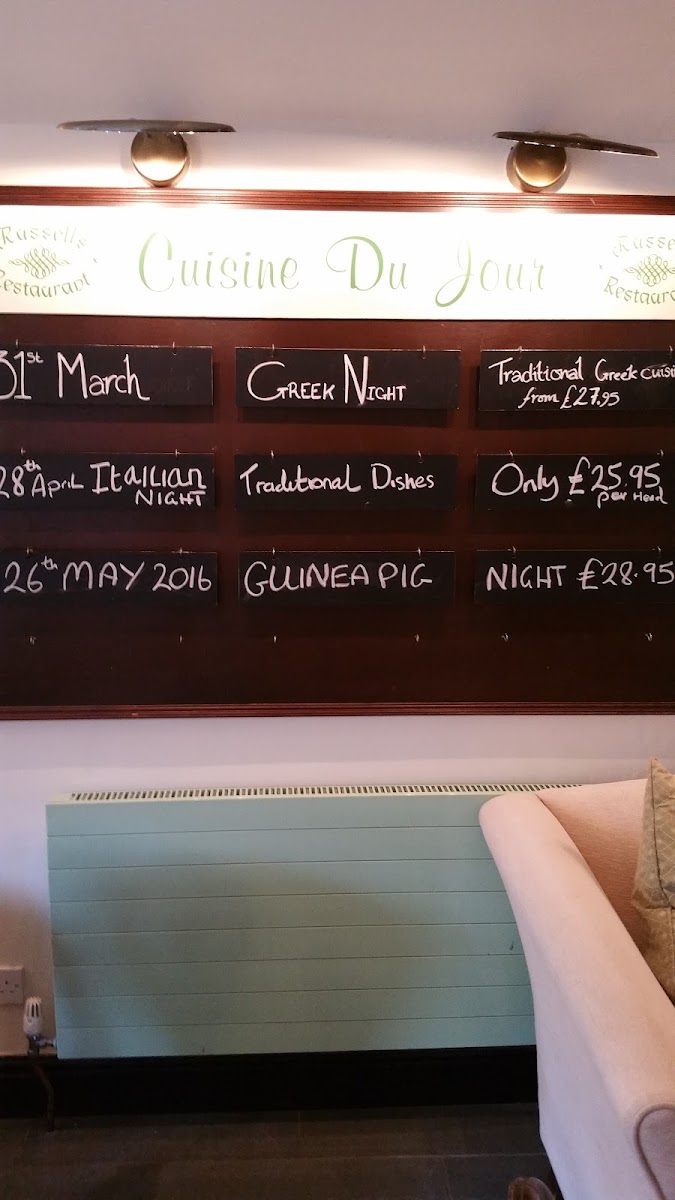 Russells
Restaurant
Cuisine Du Jour
Russe
Restaura
31st March
GREEK NIGHT
Traditional Greek cuisi
from £27.95
28th April Italian
NIGHT
Traditional Dishes
Only £25.95
per Head
26th MAY 2016
GUINEA PIG
NIGHT £28.95